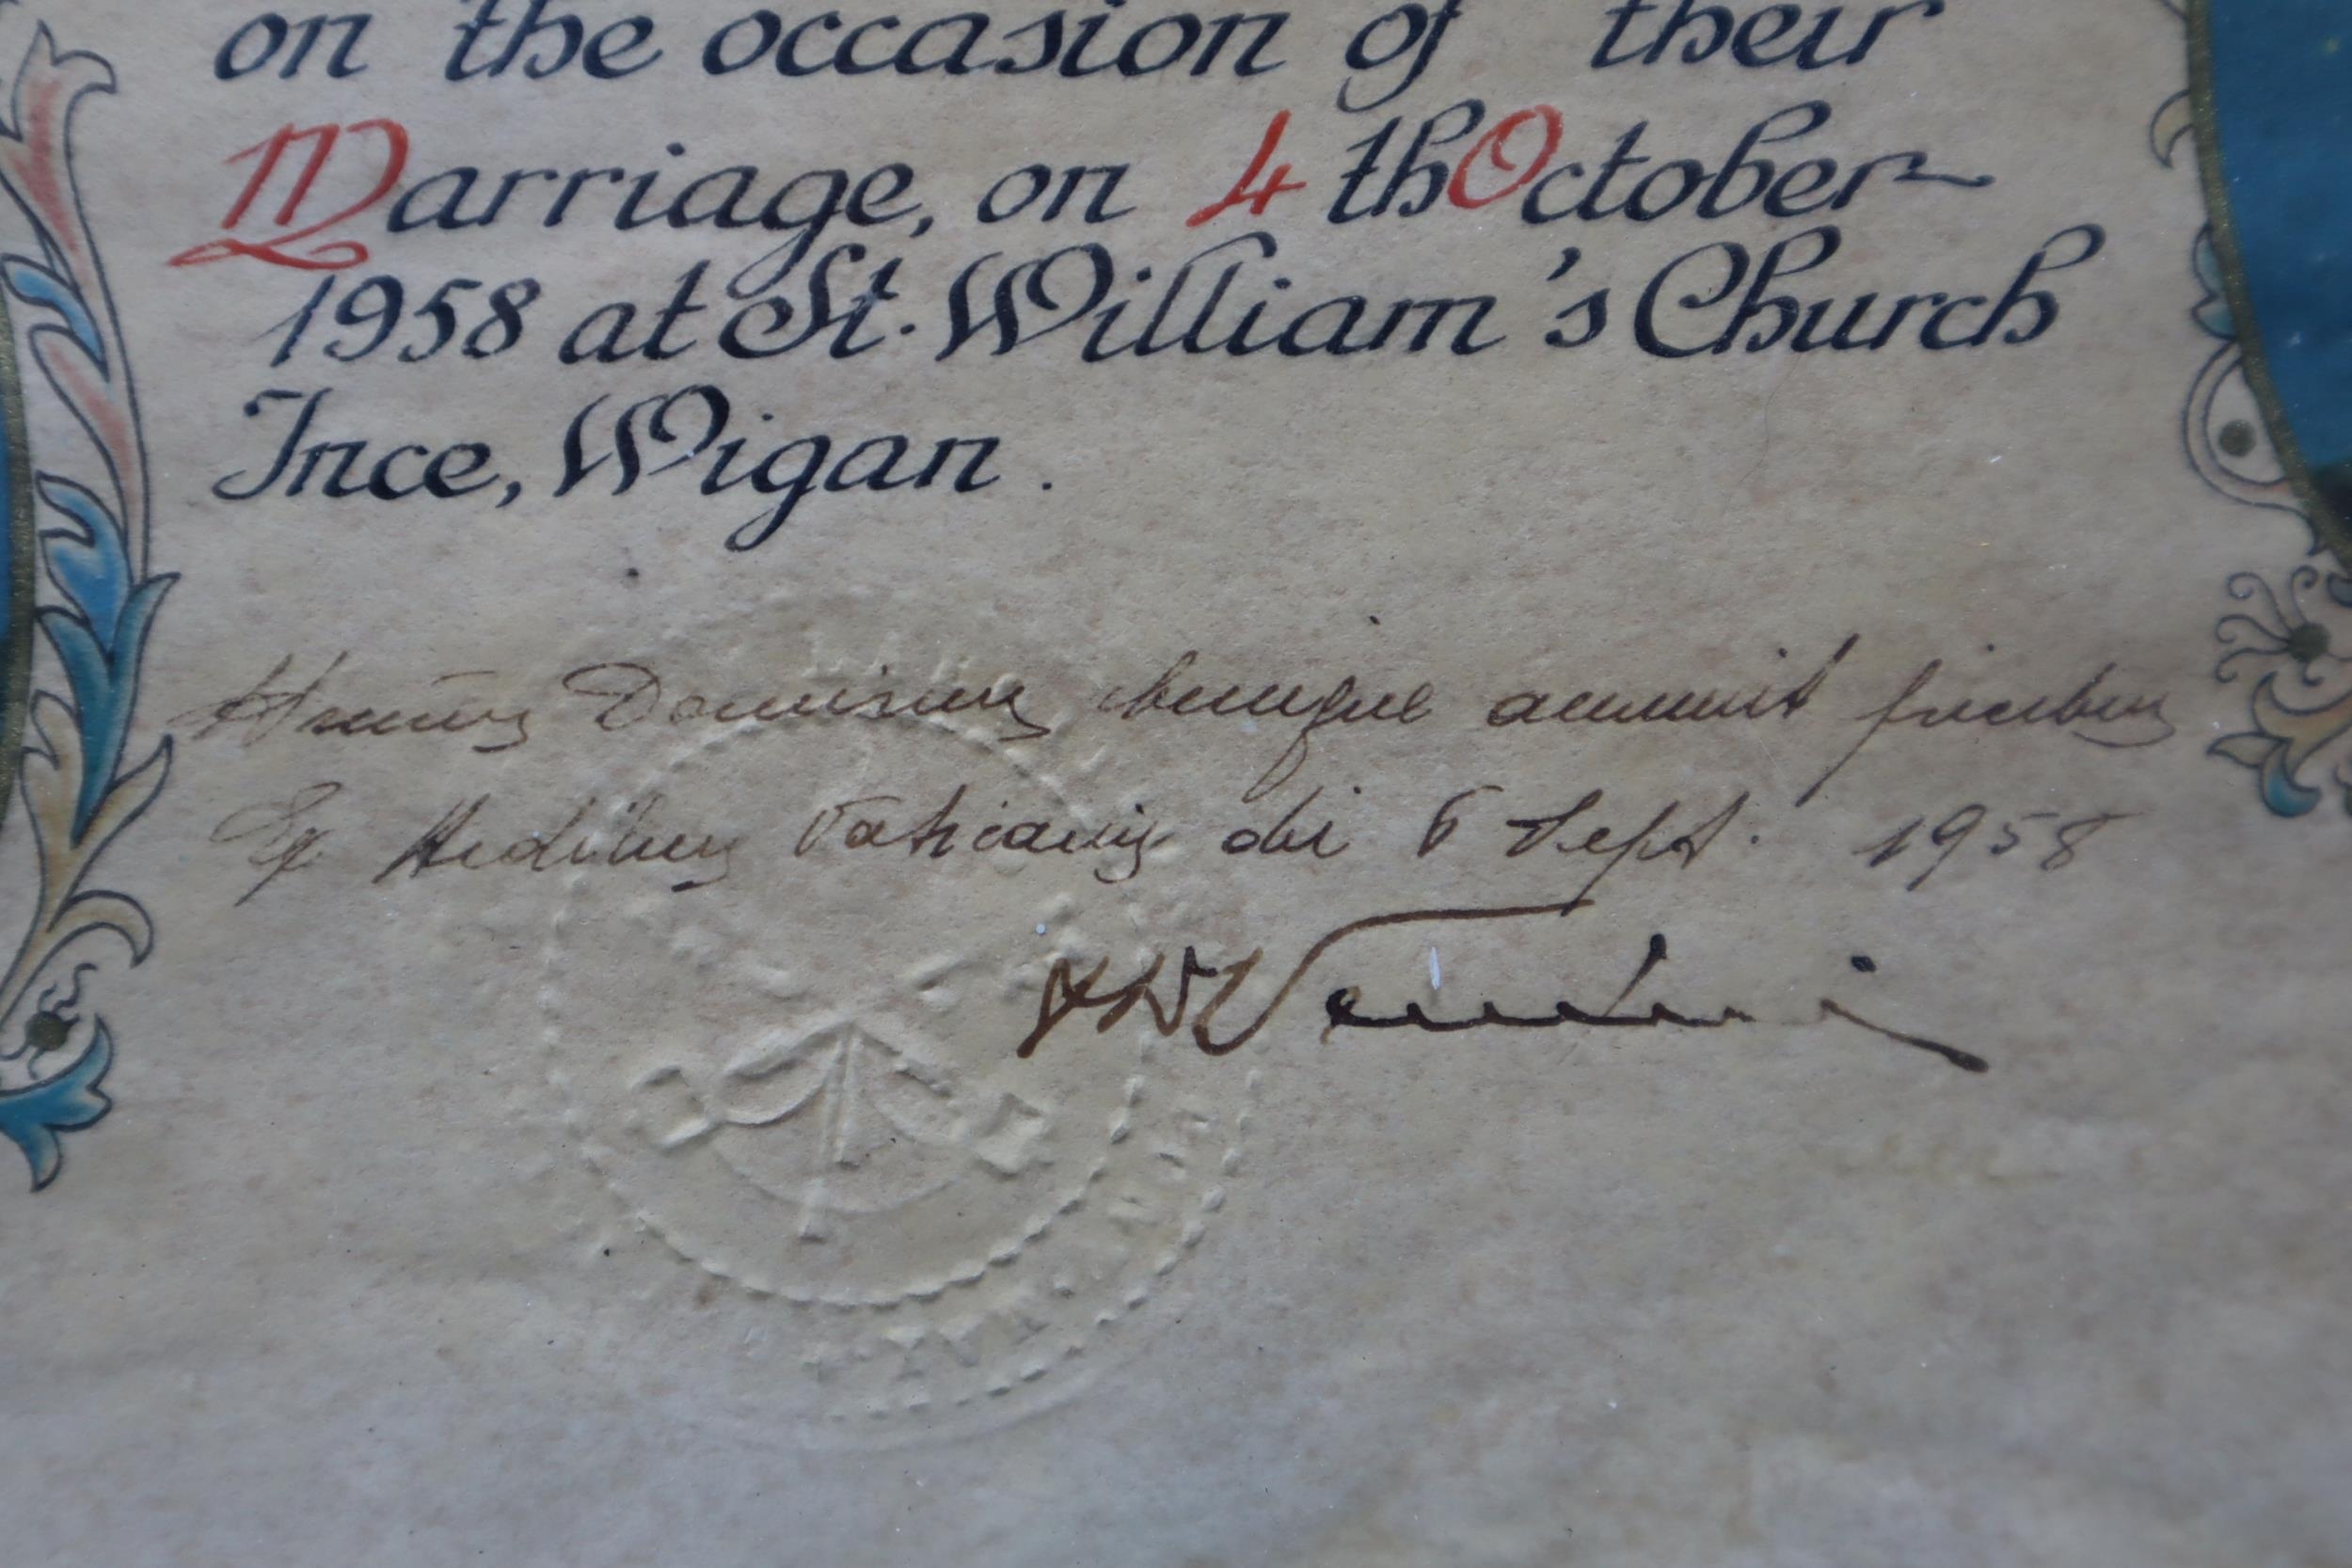 on the occasion of their
Marriage, on 4th October
1958 at St. William's Church
Ince, Wigan.
Dominus benigne annuit precibus
Ex Aedibus Vaticanis die 6 Sept. 1958